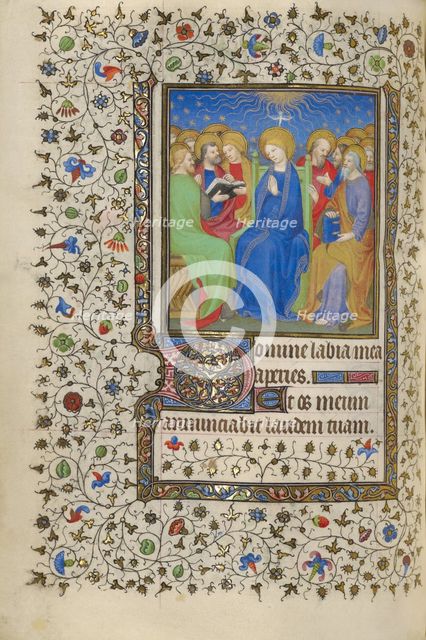 Heritage Heritage
Heritage Heritage
Domine labia mea
aperies.
Et os meum
annunciabit laudem tuam.
Heritage Heritage